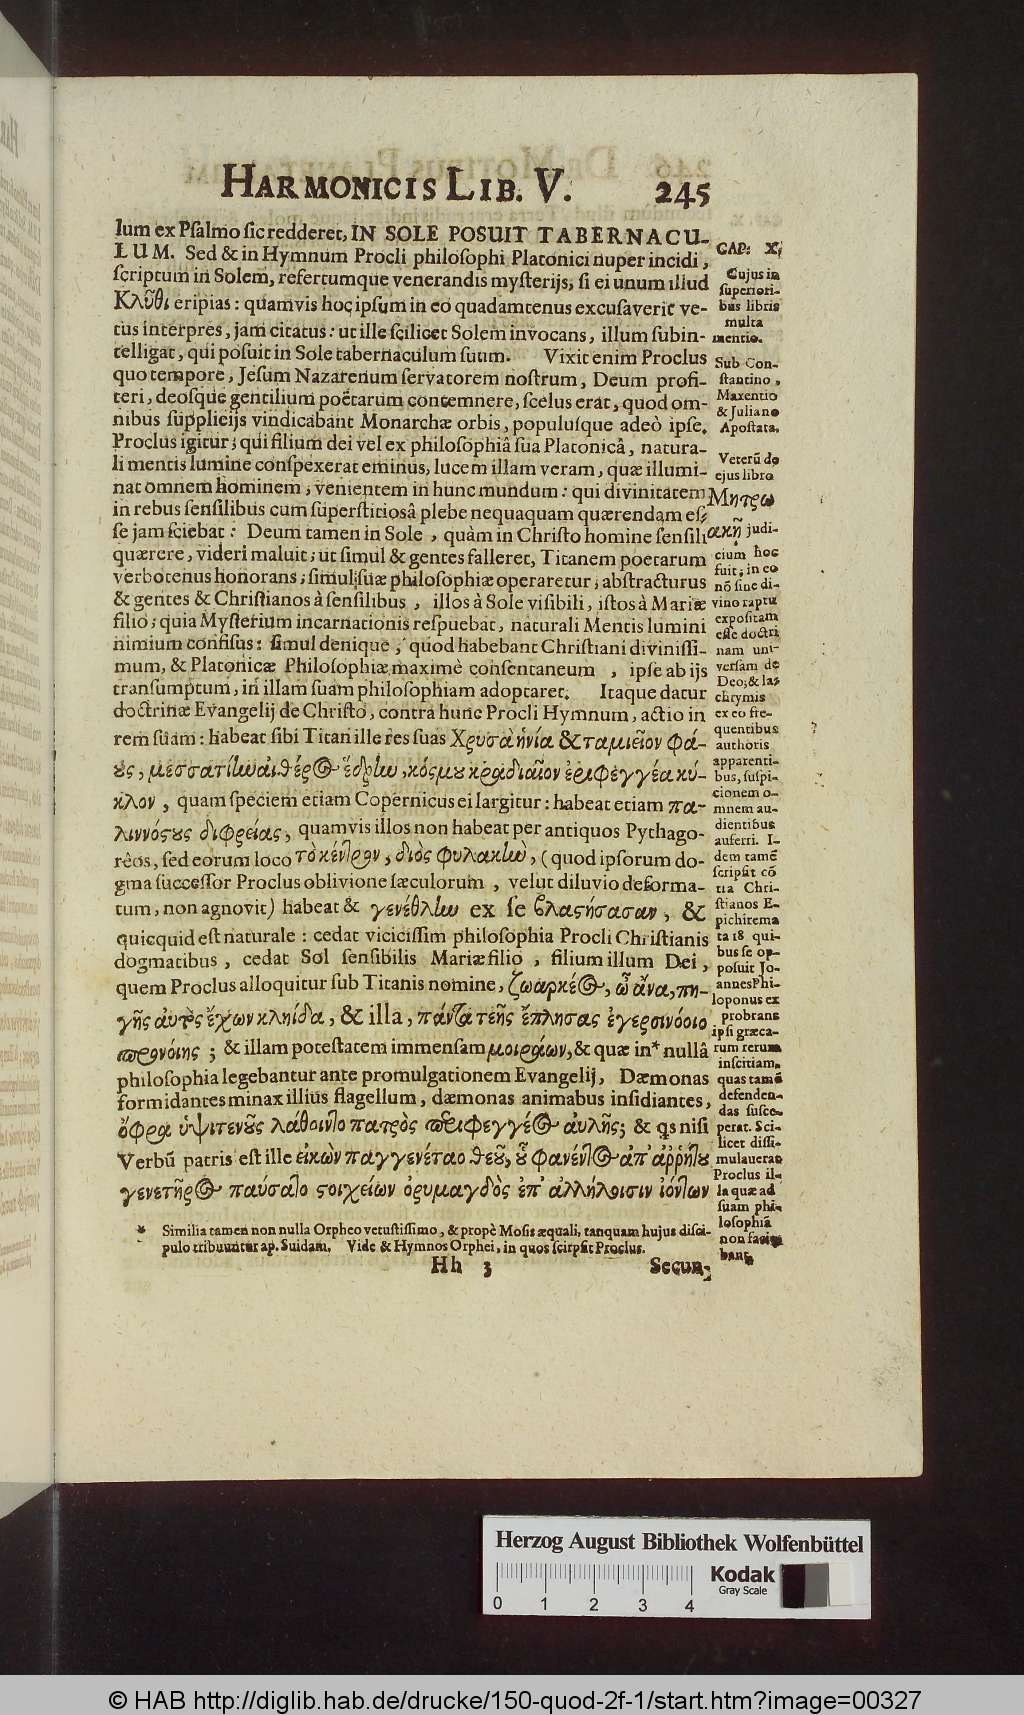 HARMONICIS LIB. V. 245
lum ex Psalmo sic redderet, IN SOLE POSUIT TABERNACU-
LUM. Sed & in Hymnum Procli philosophi Platonici nuper incidi,
scriptum in Solem, refertumque venerandis mysterijs, si ei unum illud
Κλῦθι eripias: quamvis hoc ipsum in eo quadamtenus excusaverit ve-
tus interpres, jam citatus: ut ille scilicet Solem invocans, illum subin-
telligat, qui posuit in Sole tabernaculum suum. Vixit enim Proclus
quo tempore, Jesum Nazarenum servatorem nostrum, Deum profi-
teri, deosque gentilium poëtarum contemnere, scelus erat, quod om-
nibus supplicijs vindicabant Monarchæ orbis, populusque adeò ipse.
Proclus igitur; qui filium dei vel ex philosophiâ sua Platonicâ, natura-
li mentis lumine conspexerat eminus, lucem illam veram, quæ illumi-
nat omnem hominem, venientem in hunc mundum: qui divinitatem
in rebus sensilibus cum superstitiosâ plebe nequaquam quærendam es-
se jam sciebat: Deum tamen in Sole, quàm in Christo homine sensili
quærere, videri maluit; ut simul & gentes falleret, Titanem poetarum
verbotenus honorans; simul suæ philosophiæ operaretur, abstracturus
& gentes & Christianos à sensilibus, illos à Sole visibili, istos à Mariæ
filio; quia Mysterium incarnationis respuebat, naturali Mentis lumini
nimium confisus: simul denique, quod habebant Christiani divinissi-
mum, & Platonicæ Philosophiæ maximè consentaneum, ipse ab ijs
transumptum, in illam suam philosophiam adoptaret. Itaque datur
doctrinæ Evangelij de Christo, contra hunc Procli Hymnum, actio in
rem suam: habeat sibi Titan ille res suas Χρυσὰ ἡνία & ταμιεῖον φά-
ους, μεσσατίην αἰθέρος ἕδρην, κόσμου κραδιαῖον ἐριφεγγέα κύ-
κλον, quam speciem etiam Copernicus ei largitur: habeat etiam πα-
λιννόςους διφρείας, quamvis illos non habeat per antiquos Pythago-
rêos, sed eorum loco τὸ κέντρον, διὸς φυλακὴν, (quod ipsorum do-
gma successor Proclus oblivione sæculorum, velut diluvio deforma-
tum, non agnovit) habeat & γενέθλην ex se βλαςήσασαν, &
quicquid est naturale: cedat vicicissim philosophia Procli Christianis
dogmatibus, cedat Sol sensibilis Mariæ filio, filium illum Dei,
quem Proclus alloquitur sub Titanis nomine, ζωαρκέος, ὦ ἄνα, πη-
γῆς αὐτὸς ἔχων κληίδα, & illa, πάντα τεῆς ἔπλησας ἐγερσινόοιο
προνοίης; & illam potestatem immensam μοιράων, & quæ in* nullâ
philosophia legebantur ante promulgationem Evangelij, Dæmonas
formidantes minax illius flagellum, dæmonas animabus insidiantes,
ὄφρα ὑψιτενοῦς λάθοιντο πατρὸς περιφεγγέος αὐλῆς; & qs nisi
Verbū patris est ille εἰκὼν παγγενέταο θεοῦ, οὗ φανέντος ἀπ' ἀῤῥήτου
γενετῆρος παύσατο ςοιχείων ὀρυμαγδὸς ἐπ' ἀλλήλοισιν ἰόντων
* Similia tamen non nulla Orpheo vetustissimo, & propè Mosis æquali, tanquam hujus disci-
pulo tribuuntur ap. Suidam. Vide & Hymnos Orphei, in quos scirpsit Proclus.
Hh 3 Secun-
CAP: X.
Cujus in
superiori-
bus libris
multa
mentio.
Sub Con-
stantino,
Maxentio
& Juliano
Apostata.
Veterū de
ejus libro
Μητρω
ακῆ judi-
cium hoc
fuit; in eo
nō sine di-
vino raptu
expositam
esse doctri
nam uni-
versam de
Deo; & la-
chrymis
ex eo fre-
quentibus
authoris
apparenti-
bus, suspi-
cionem o-
mnem au-
dientibus
auferri. I-
dem tamē
scripsit cō
tra Chri-
stianos E-
pichirema
ta 18 qui-
bus se op-
posuit Jo-
annes Phi-
loponus ex
probrans
ipsi græca-
rum rerum
inscitiam,
quas tamē
defenden-
das susce-
perat. Sci-
licet dissi-
mulaverat
Proclus il-
la quæ ad
suam phi-
losophiā
non facie
bant.
Herzog August Bibliothek Wolfenbüttel
Kodak
Gray Scale
0 1 2 3 4
© HAB http://diglib.hab.de/drucke/150-quod-2f-1/start.htm?image=00327